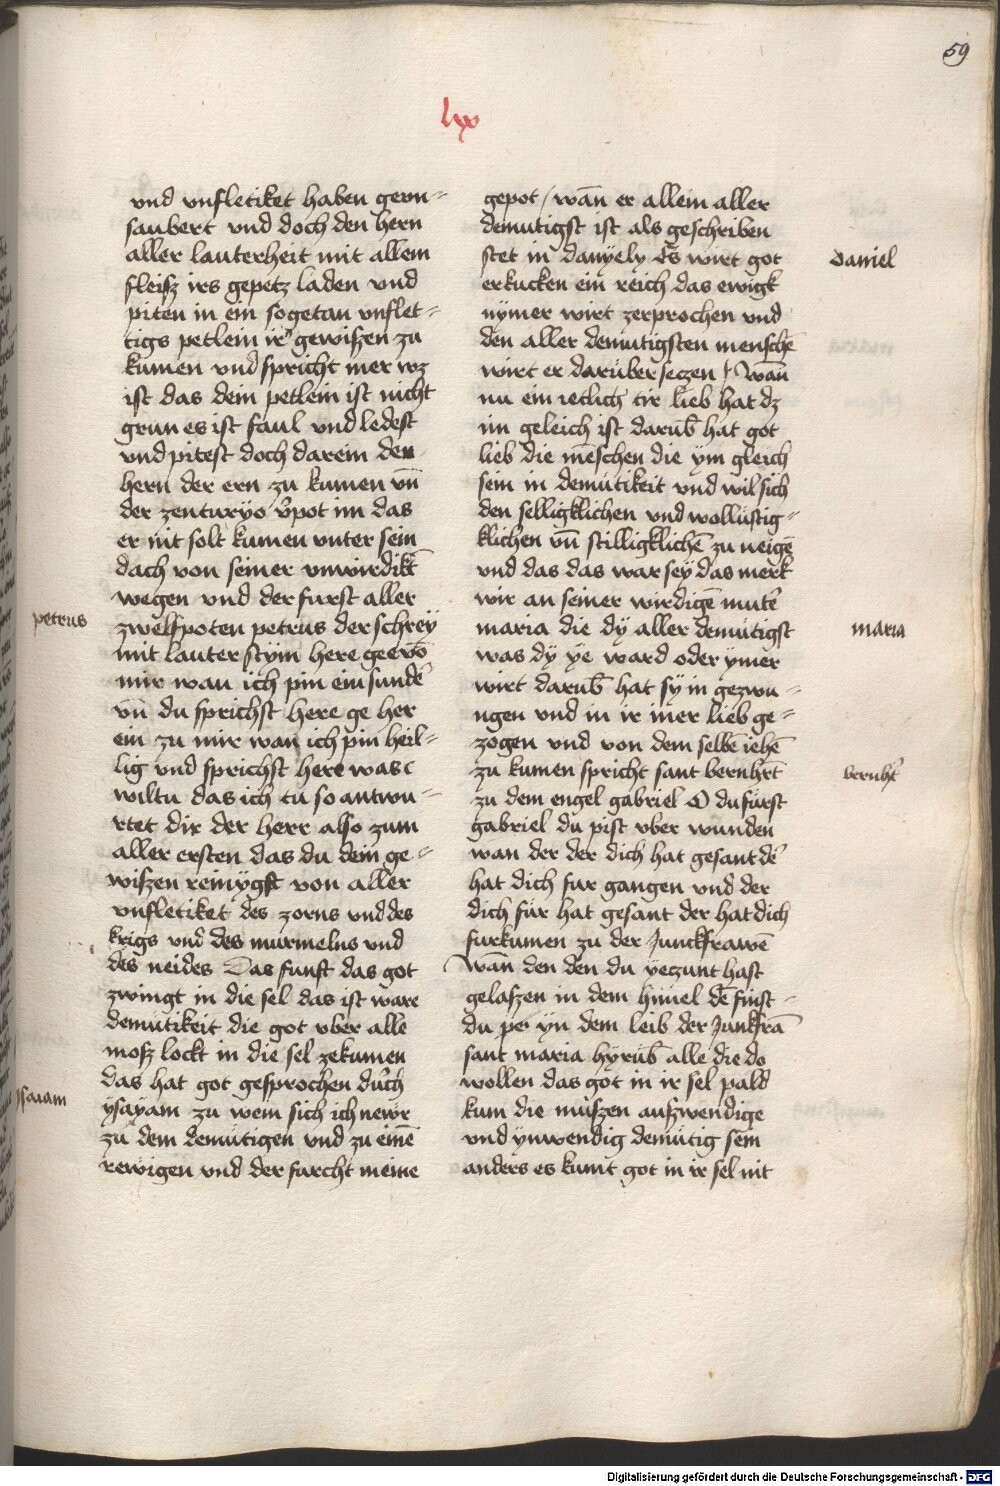 59
lxx
und unfletiket haben geun-
saubert und doch den hern
aller lauterheit mit allem
fleisz irs gepetz laden und
piten in ein sogetan unflet-
tigs petlein ir gewiszen zu
kumen und spricht mer wz
ist das dein petlein ist nicht
grun es ist faul und ledest
und pitest doch darein den
hern der ern zu kumen uñ
der zenturyo v̄pot im das
er nit solt kumen unter sein
dach von seiner unwirdikt̄
wegen und der furst aller
petrus
zwelfpoten petrus der schrey
mit lauter stym here gee vō
mir wan ich pin ein sunder
uñ du sprichst here ge her
ein zu mir wan ich pin heil-
lig und sprichst here was
wiltu das ich tu so antwu-
rtet dir der herr also zum
aller ersten das du dein ge-
wiszen reinygst von aller
unfletiket des zorns und des
krigs und des murmelns und
des neides Das funft das got
zwingt in die sel das ist ware
demütikeit die got uber alle
mosz lockt in die sel zekumen
das hat got gesprochen durch
ysaiam
ysayam zu wem sich ich newr
zu dem demütigen und zu einē
rewigen und der furcht meine
gepot / wān er allein aller
demutigst ist als geschriben
stet in danyely Es wirt got
daniel
erkucken ein reich das ewigk
nymer wirt zerprochen und
den aller demütigsten menschē
wirt er darüber seczen / wān
nu ein ietlich tir lieb hat dz
im geleich ist darūb hat got
lieb die mēschen die ym gleich
sein in demütikeit und wil sich
den selligklichen und wollustig-
klichen uñ stilligklichē zu neigē
und das das war sey das merk
wir an seiner wirdigē muter
maria die dy aller demütigst
maria
was dy ye ward oder ymer
wirt darūb hat sy in gezwu-
ngen und in ir iner lieb ge-
zogen und von dem selbē
zu kumen spricht sant bernhrt̄
bernhr̄t
zu dem engel gabriel O du fürst
gabriel du pist uber wunden
wan der der dich hat gesant der
hat dich fur gangen und der
dich für hat gesant der hat dich
furkumen zu der Junckfrawē
wān den den du yeczunt hast
gelaszen in dem himel
du yn dem leib der Junkfrā
sant maria hyrūb alle die do
wollen das got in ir sel pald
kum die müszen auszwendige
und ynwendig demütig sein
anders es kumt got in ir sel nit
Digitalisierung gefördert durch die Deutsche Forschungsgemeinschaft - DFG